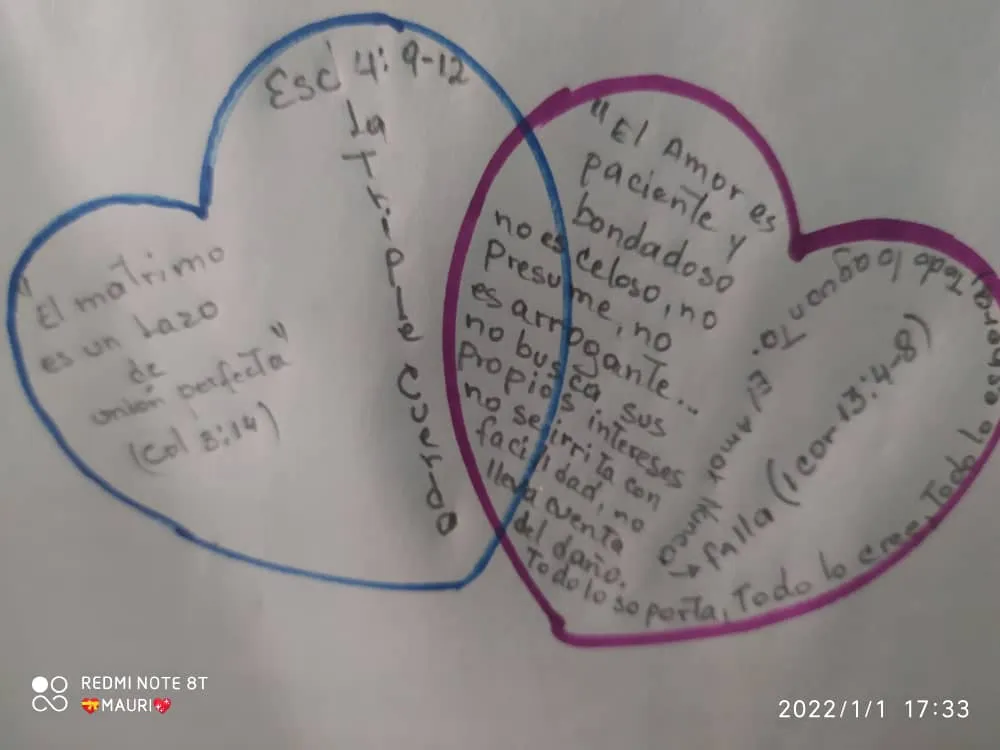 Esc 4: 9-12
La
Triple cuerda
"El matrimo
es un Lazo
de
unión perfecta"
(Col 3:14)
"El Amor es
paciente y
bondadoso
no es celoso, no
Presume, no
es arrogante...
no busca sus
Propios intereses
no se irrita con
facilidad, no
lleva cuenta
del daño.
Todo lo soporta, Todo lo cree, Todo lo espera, Todo lo aguanTa. El Amor Nunca
→ falla (1 cor 13:4-8)
REDMI NOTE 8T
💝MAURI💖
2022/1/1 17:33